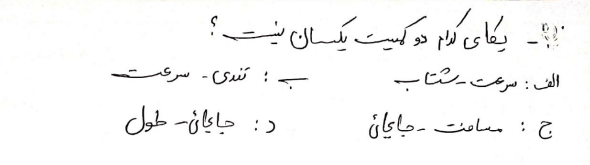 - یکای کدام دو کمیت یکسان نیست؟
الف: سرعت - شتاب ب: تندی - سرعت
ج: مسافت - جابجائی د: جابجائی - طول